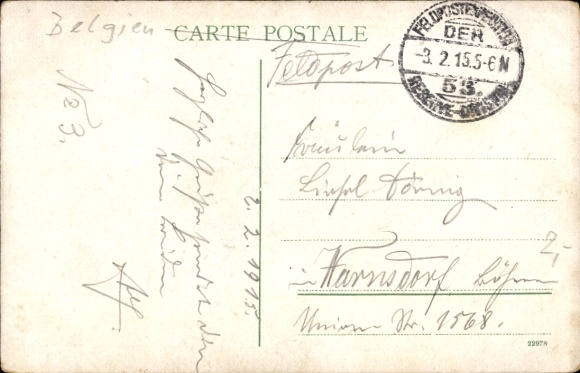 Belgien
CARTE POSTALE
Feldpost
FELDPOSTEXPEDITION
DER
-3.2.15.5-6N
53.
RESERVE-DIVISION
No 3.
Herzliche Grüße sendet den
2.2.1915.
Fräulein
Liesel
in Warnsdorf Böhmen
Union-Str. 1568.
2,-
22978